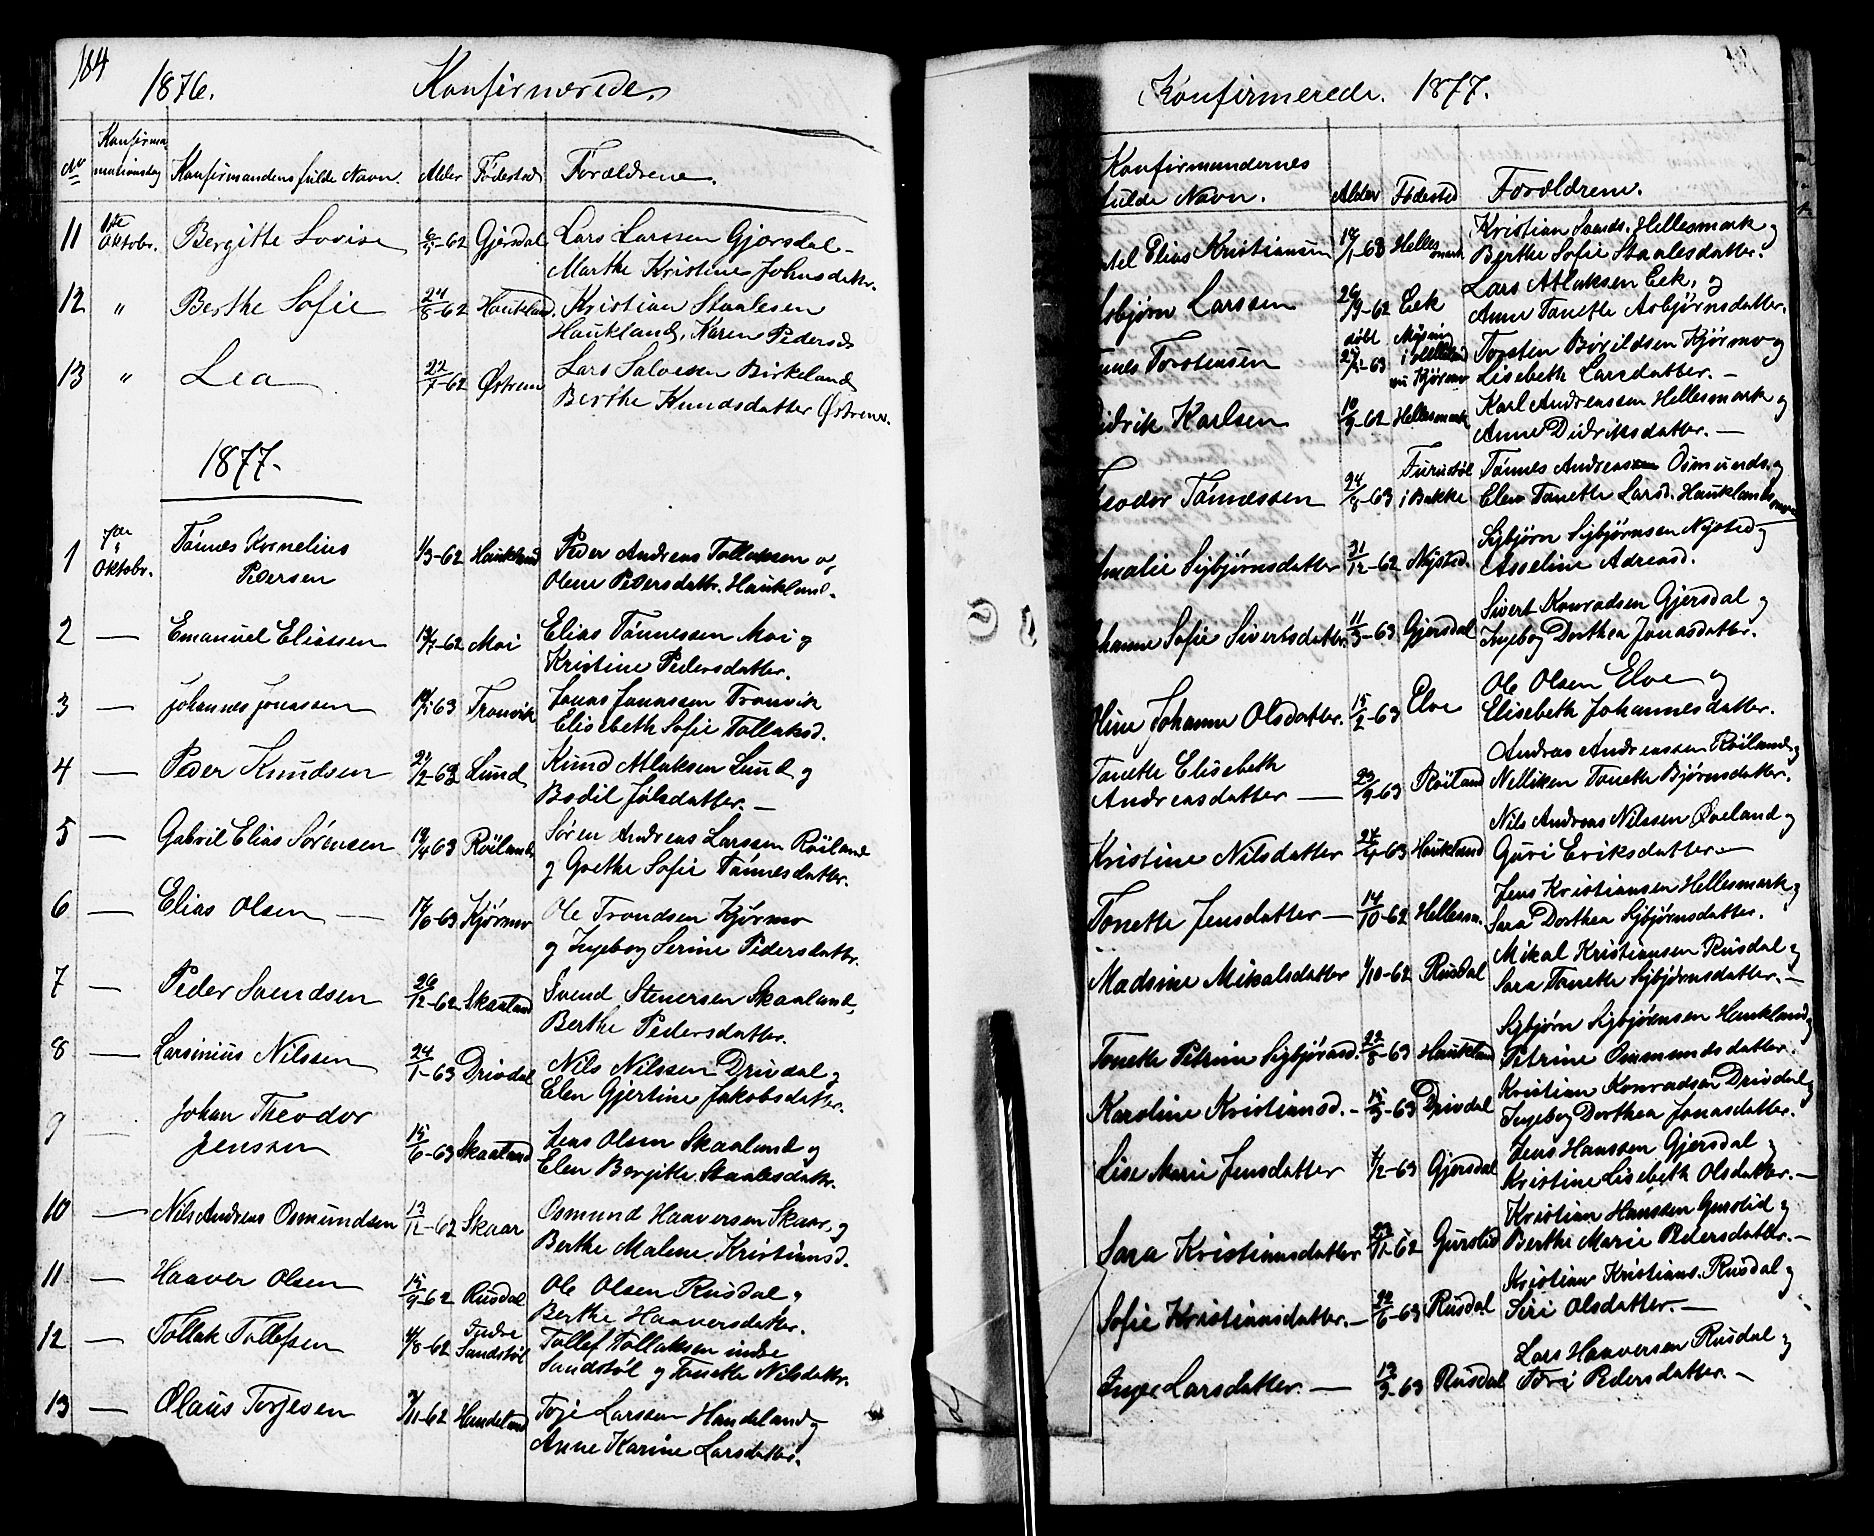 184
1876. Konfirmerede.
No Konfirmationsdag Konfirmandens fulde Navn. Alder Fødested Forældrene.
11 1ste Oktobr. Bergitte Lovise -62 Gjersdal Lars Larssen Gjersdal -
Marthe Kristine Johnsdatr.
12 " Berthe Sofie 24/8-62 Haukland. Kristian Staalesen
Haukland, Karen Pedersd.
13 " Lea 22/7-62 Østrem Lars Salvesen Birkeland
Berthe Knudsdatter Østrem.
1877.
1 7de Oktobr. Tønnes Kornelius Pedersen 1/3-62 Haukland Peder Andreas Tollaksen og
Olene Pedersdatr. Haukland.
2 — Emanuel Eliassen -62 Moi Elias Tønnessen Moi og
Kristine Pedersdatter.
3 — Johannes Jonassen 63 Tronvik Jonas Jonassen Tronvik
Elisebeth Sofie Tollaksd.
4 — Peder Knudsen 2-63 Lund Knud Atlaksen Lund og
Bodil Jølsdatter. —
5 — Gabril Elias Sørensen 19/4 63 Røiland Søren Andreas Larssen Røiland
og Grethe Sofie Tønnesdatter.
6 — Elias Olsen — -63 Kjørmo Ole Trondsen Kjørmo
og Ingebog Serine Pedersdatr.
7 — Peder Svendsen 26/12-62 Skaaland Svend Stenersen Skaaland,
Berthe Pedersdatter.
8 — Larsinius Nilssen 24/1-63 Drivdal Nils Nilssen Drivdal og
Elen Gjertine Jakobsdatter.
9 — Johan Theodor Jenssen 15/6-63 Skaaland Jens Olsen Skaaland og
Elen Bergitte Staalesdatr.
10 — Nils Andreas Osmundsen 13/12-62 Skaar Osmund Haaversen Skaar, og
Berthe Malene Kristiansd.
11 — Haaver Olsen 15/9-62 Rusdal Ole Olsen Rusdal og
Berthe Haaversdatter.
12 — Tollak Tollefsen /8-62 Indre Sandstøl Tollef Tollaksen indre
Sandstøl og Tonette Nilsdatr.
13 — Olaus Torjesen /11-62 Handeland Torje Larssen Handeland og
Anne Karine Larsdatter.
Konfirmerede. 1877.
Konfirmandernes
fulde Navn. Alder Fødested Forældrene.
Elias Kristiansen -63 Hellesmark Kristian Hellesmark og
Berthe Sofie Staalesdatter.
sbjørn Larssen 26/9-62 Eek Lars Atlaksen Eek, og
Anne Tonette Asbjørnsdatter.
nnes Torstensen døbt -63 i Helleland nu Kjørmo Torsten Bøvildsen Kjørmo og
Lisebeth Larsdatter. —
idrik Karlsen 10/9-62 Hellesmark Karl Andreassen Hellesmark og
Anne Didriksdatter. —
eodor Tønnessen 24/8-63 Furustøl i Bakke Tønnes Andreassen Osmunds. og
Elen Tonette Larsd. Hauklands
malie Sigbjørnsdatter 31/12-62 Nysted. Sigbjørn Sigbjørnsen Nysted og
Asseline Adreasd.
hanne Sofie Sivertsdatter 11/3-63 Gjersdal Sivert Konradsen Gjersdal og
Ingebog Dorthea Jonasdatter.
Oline Johanne Olsdatter. 15/2-63 Elve Ole Olsen Elve og
Elisebeth Johannesdatter.
Tonette Elisebeth
Andreasdatter — 23/9-63 Røiland Andreas Andreassen Røiland og
Nelliken Tonette Bjørnsdatter.
Kristine Nilsdatter 24/4-63 Haukland Nils Andreas Nilssen Øveland og
Guri Eriksdatter —
Tonette Jensdatter — 14/10-62 Hellesm. Jens Kristiansen Hellesmark og
Sara Dorthea Sigbjørnsdatter.
Madsine Mikalsdatter /10-62 Rusdal Mikal Kristiansen Rusdal og
Sara Tonette Sigbjørnsdatter. —
Tonette Petrine Sigbjørnsd. 22/8-63 Haukland Sigbjørn Sigbjørnsen Haukland og
Petrine Ommundsdatter.
Karoline Kristiansd. — 15/3-63 Drivdal Kristian Konradsen Drivdal og
Ingebog Dorthea Jonasdatter.
Lise Marie Jensdatter /2-63 Gjersdal Jens Hanssen Gjersdal og
Kristine Lisebeth Olsdatter. —
Sara Kristiansdatter 23/11-62 Gursted Kristian Hanssen Gursted og
Berthe Marie Pedersdatter. —
Sofie Kristiansdatter. — /6-63 Rusdal Kristian Kristians. Rusdal og
Siri Olsdatter. —
Inger Larsdatter. — 12/3-63 Rusdal Lars Haaversen Rusdal og
Tori Pedersdatter. —